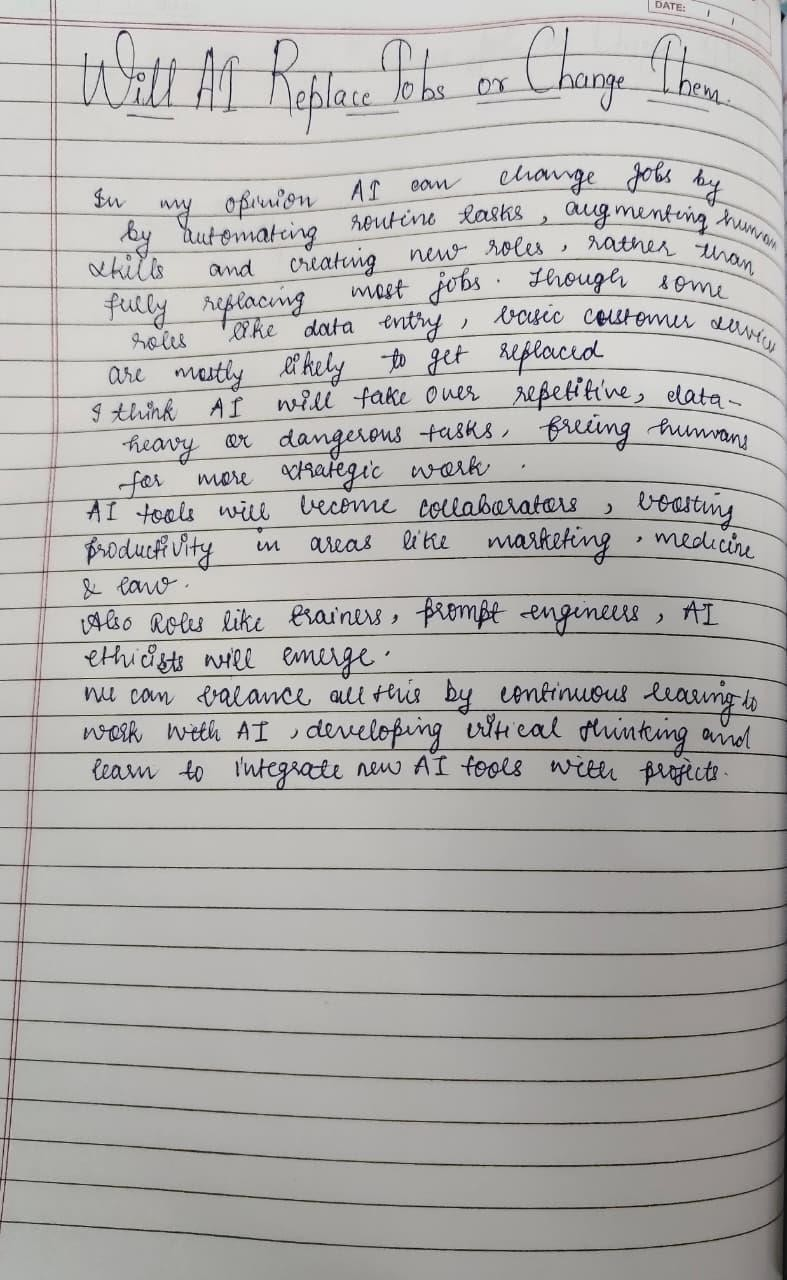 DATE: / /
Will AI Replace Jobs or Change Them.
In my opinion AI can change jobs by
by automating routine tasks, augmenting human
skills and creating new roles, rather than
fully replacing most jobs. Though some
roles like data entry, basic customer service
are mostly likely to get replaced
I think AI will take over repetitive, data-
heavy or dangerous tasks, freeing humans
for more strategic work.
AI tools will become collaborators, boosting
productivity in areas like marketing, medicine
& law.
Also Roles like trainers, prompt engineers, AI
ethicists will emerge.
We can balance all this by continuous learing to
work with AI, developing critical thinking and
learn to integrate new AI tools with projects.